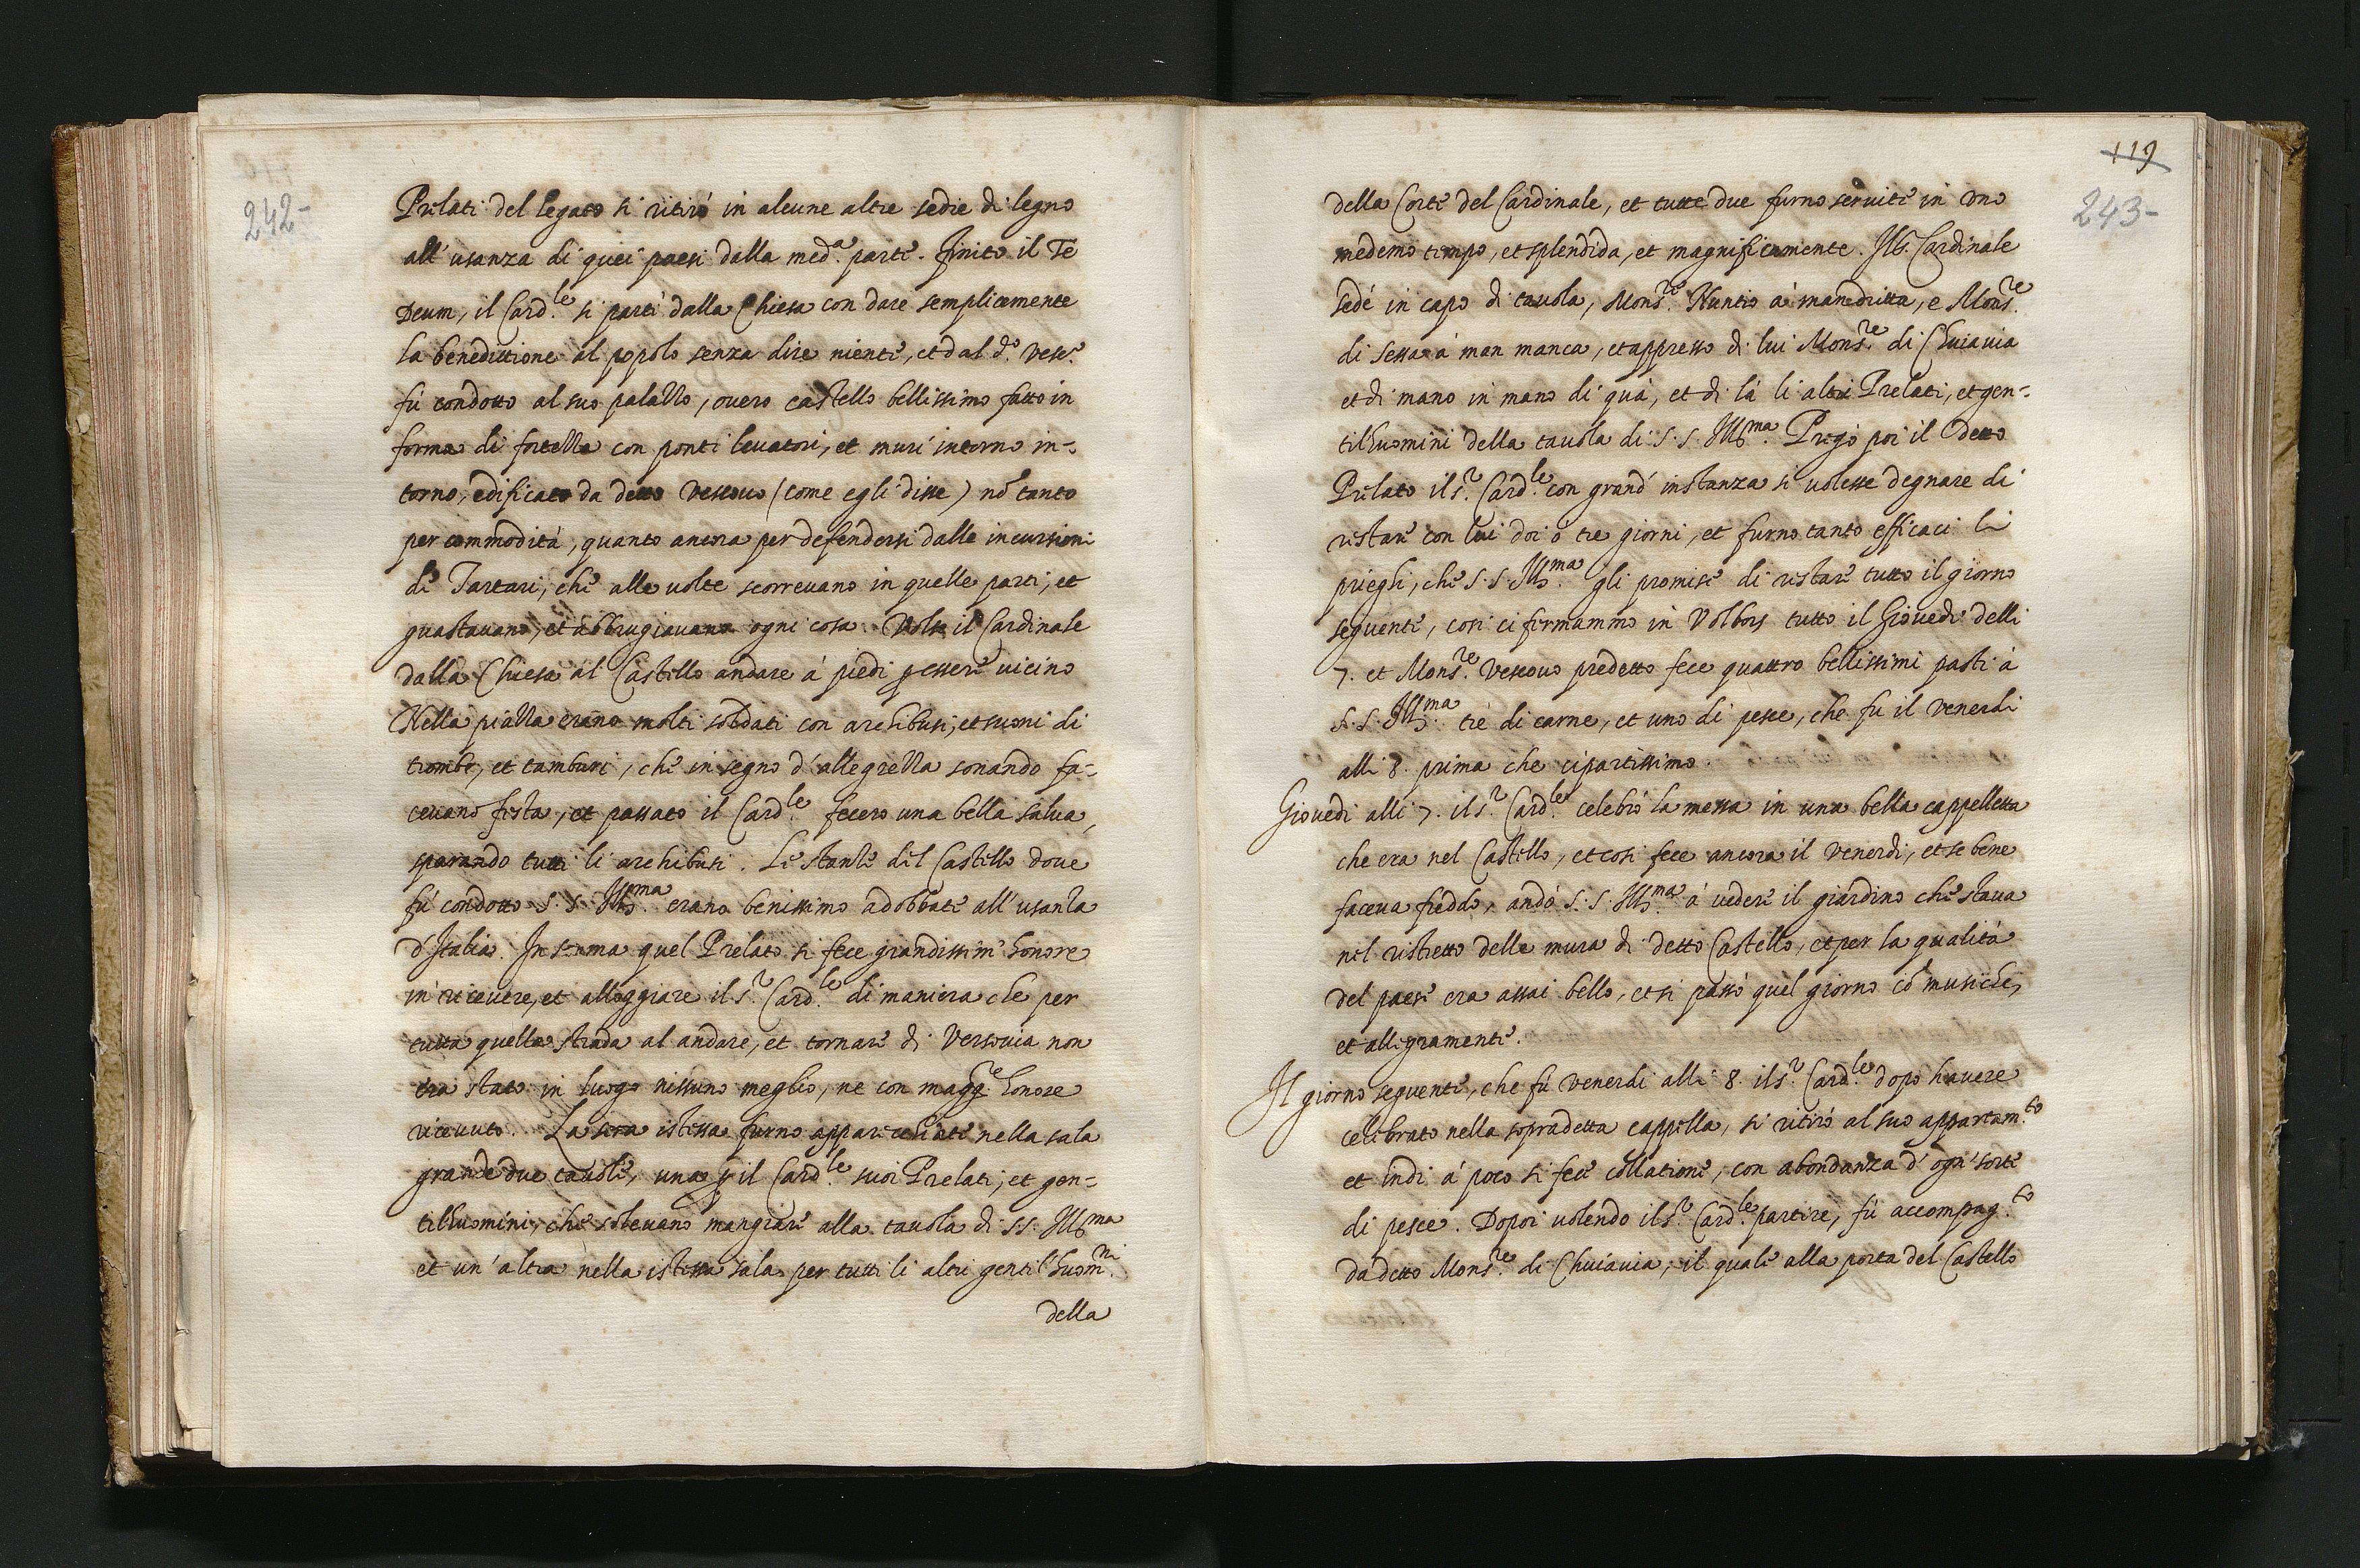 242-
Prelati del legato si ritirò in alcune altre sedie di legno
all'usanza di quei paesi dalla med.a parte. Finito il Te
Deum, il Card.le si partì dalla Chiesa con dare semplicemente
la benedittione al popolo senza dire niente, et dal d.o Vesc.o
fù condotto al suo palazzo, overo castello bellissimo fatto in
forma di fortezza con ponti levatori, et muri intorno in-
torno, edificato da detto Vescovo (come egli disse) nõ tanto
per commodità, quanto ancora per defendersi dalle incursioni
de Tartari, che alle volte scorrevano in quelle parti, et
guastavano, et abbrugiavano ogni cosa. Volse il Cardinale
dalla Chiesa al Castello andare à piedi p essere vicino
Nella piazza erano molti soldati con archibusi, et suoni di
trombe, et tamburi, che in segno d'allegrezza sonando fa-
cevano festa, et passato il Card.le fecero una bella salva,
sparando tutti li archibusi. Le stanze del Castello dove
fù condotto S. S. Ill.ma erano benissimo adobbate all'usanza
d'Italia. In somma quel Prelato si fece grandissim' honore
in ricevere, et alloggiare il s.r Card.le di maniera che per
tutta quella strada al andare, et tornare di Versovia non
era stato in luogo nissuno meglio, ne con magg.re honore
ricevuto. La sera istessa furno apparecchiate nella sala
grande due tavole, una p il Card.le suoi Prelati, et gen-
tilhuomini, che solevano mangiare alla tavola di S.S. Ill.ma
et un'altra nella istessa sala per tutti li altri gentilhuom.ni
della
119
243-
della Corte del Cardinale, et tutte due furno servite in uno
medemo tempo, et splendida, et magnificamente. Ill. Cardinale
sedé in capo di tavola, Mons.re Nuntio à mandritta, e Mons.re
di Sessa à man manca, et appresso di lui Mons.re di Chuiavia
et di mano in mano di quà, et di là li altri Prelati, et gen-
tilhuomini della tavola di S. S. Ill.ma Pregò poi il detto
Prelato il s.r Card.le con grand'instanza si volesse degnare di
restare con lui doi ò tre giorni, et furno tanto efficaci li
prieghi, che S. S. Ill.ma gli promise di restare tutto il giorno
seguente, così ci fermammo in Volbors tutto il Giovedi delli
7. et Mons.re Vescovo predetto fece quattro bellissimi pasti à
S. S. Ill.ma tre di carne, et uno di pesce, che fu il venerdi
alli 8. prima che ci partissimo.
Giovedi alli 7. il s.r Card.le celebrò la messa in una bella cappelletta
che era nel Castello, et così fece ancora il venerdi, et se bene
faceva freddo, andò S. S. Ill.ma à vedere il giardino che stava
nel ristretto delle mura di detto Castello, et per la qualità
del paese era assai bello, et si passò quel giorno cõ musiche,
et allegramente.
Il giorno seguente, che fù venerdi alli 8. il s.r Card.le dopo havere
celebrato nella sopradetta cappella, si ritirò al suo appartam.to
et indi à poco si fece collatione, con abondanza d'ogn'sorte
di pesce. Dopoi volendo il s.r Card.le partire, fù accompag.to
da detto Mons.re di Chuiavia, il quale alla porta del Castello